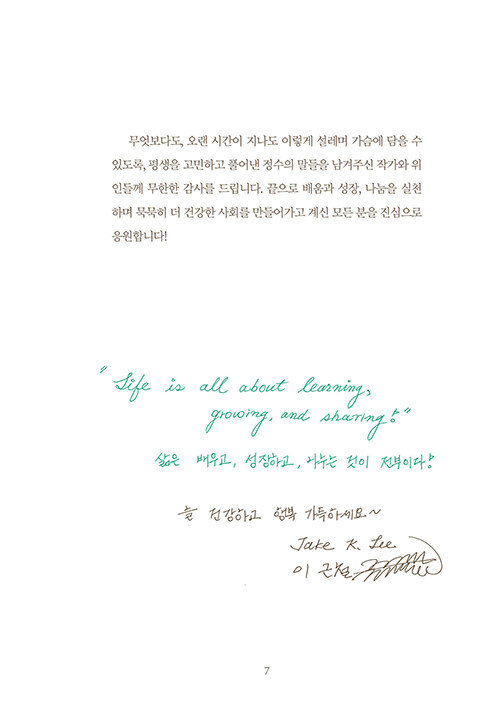 무엇보다도, 오랜 시간이 지나도 이렇게 설레며 가슴에 담을 수
있도록, 평생을 고민하고 풀어낸 정수의 말들을 남겨주신 작가와 위
인들께 무한한 감사를 드립니다. 끝으로 배움과 성장, 나눔을 실천
하며 묵묵히 더 건강한 사회를 만들어가고 계신 모든 분을 진심으로
응원합니다!
"Life is all about learning,
growing, and sharing!"
삶은 배우고, 성장하고, 나누는 것이 전부이다!
늘 건강하고 행복 가득하세요~
Jake K. Lee
이 근철
7